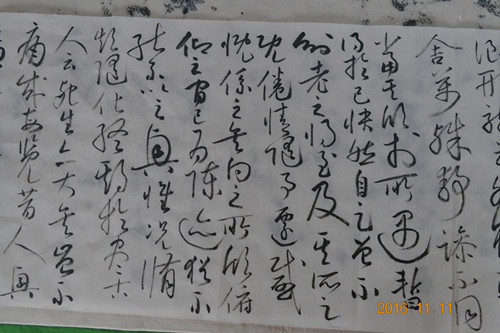 舍萬殊靜躁不同
當其欣於所遇暫
得於己快然自足曾不
知老之將至及其所之
既倦情隨事遷感
慨係之矣向之所欣俯
仰之間已為陳迹猶不
能不以之興懷況脩
短隨化終期於盡古
人云死生亦大矣豈不
痛哉每覽昔人興
2016-11.11